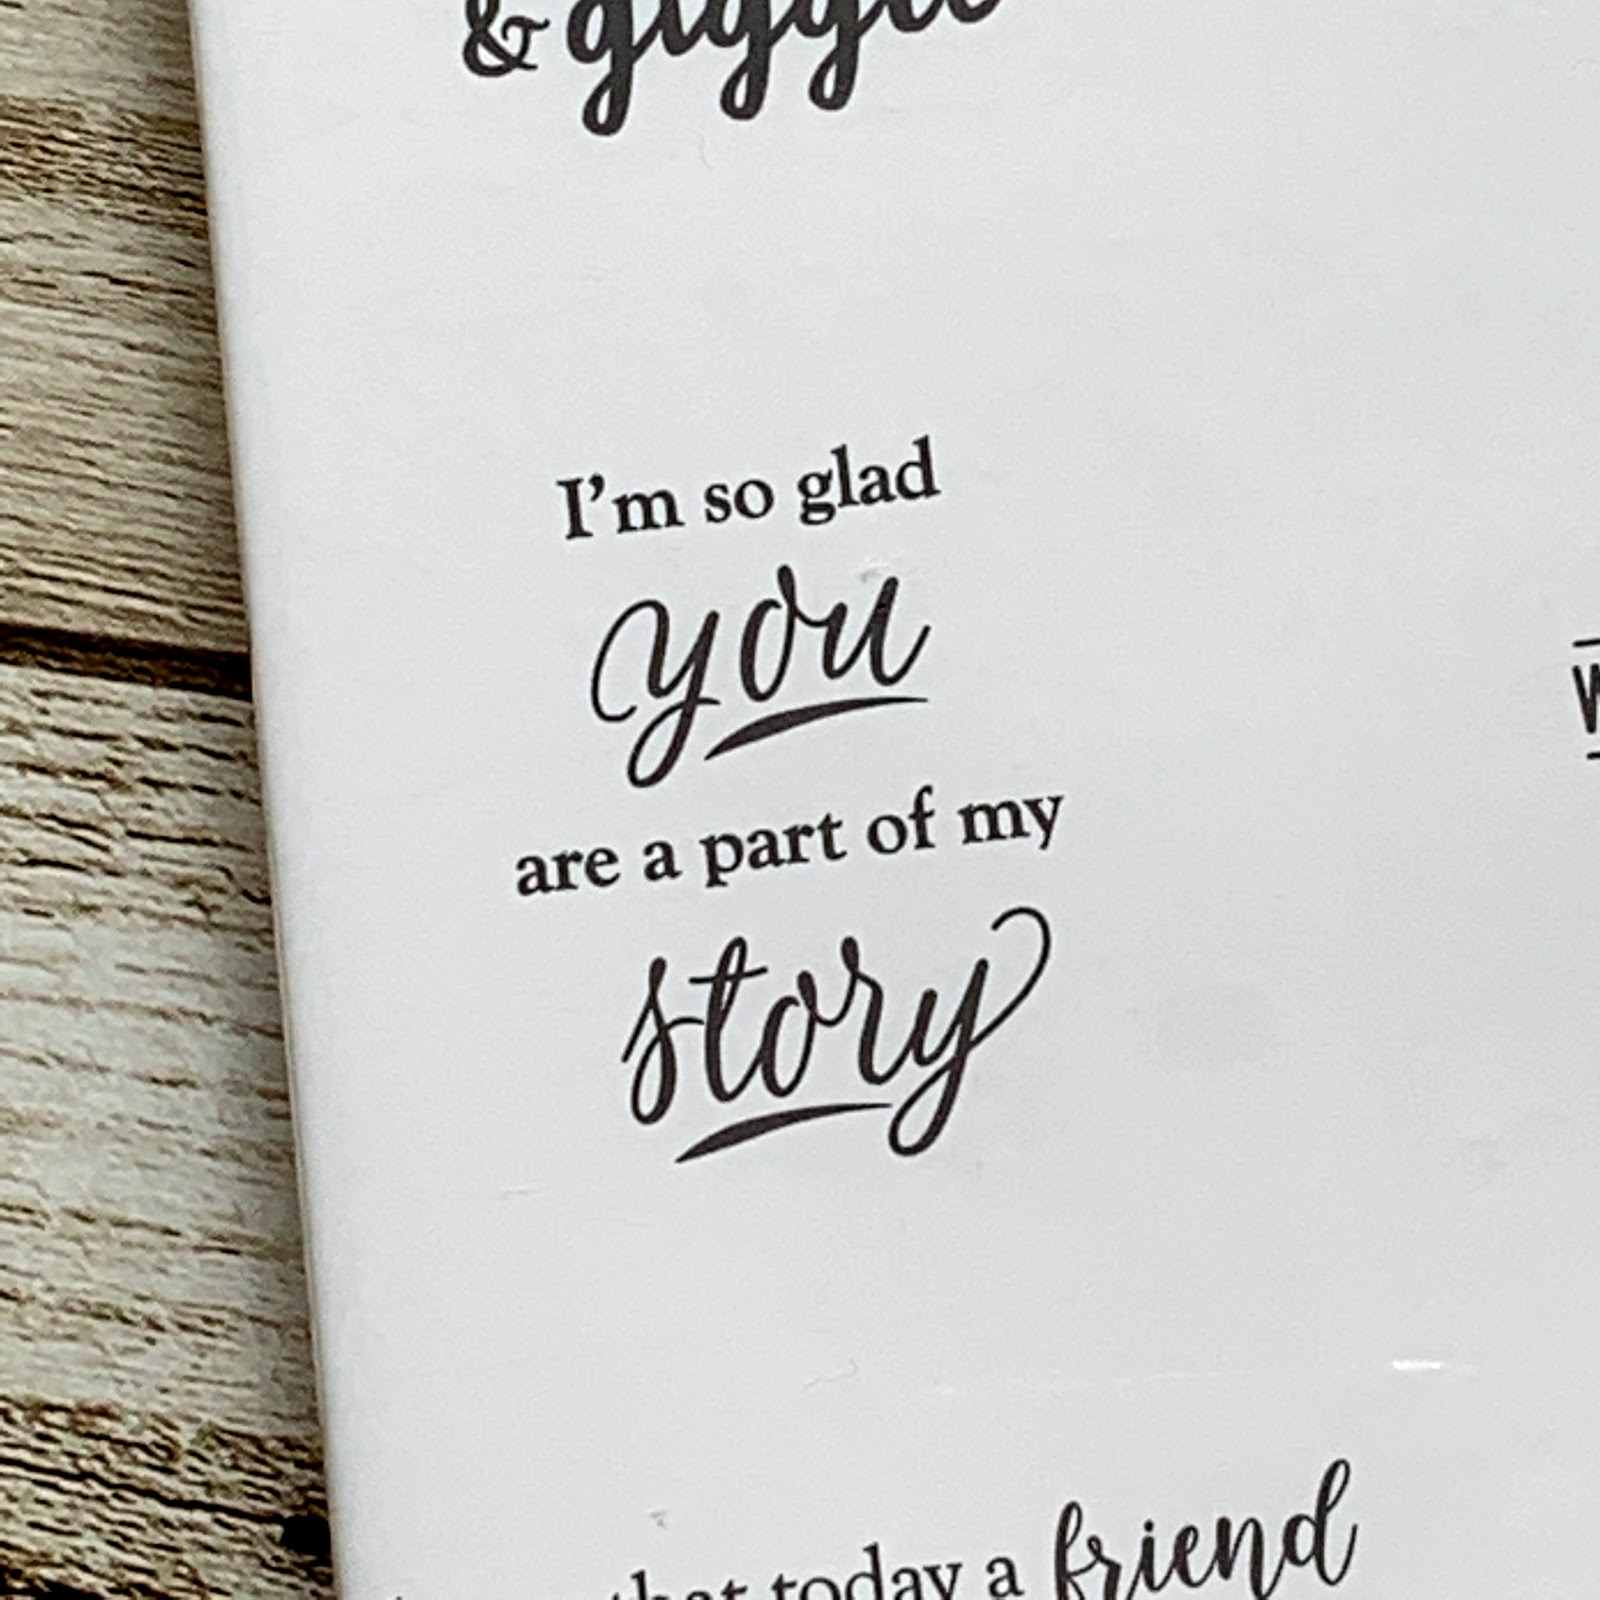 &
I'm so glad
you
are a part of my
story
that today a friend